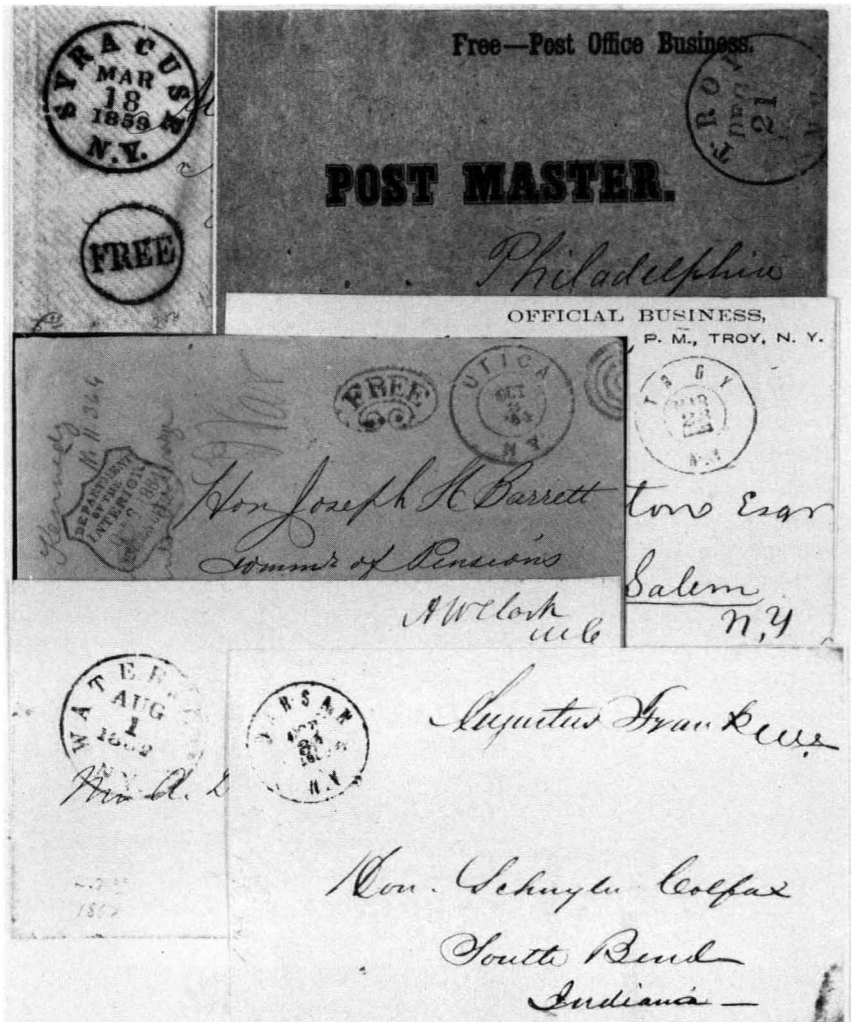 SYRACUSE
MAR
18
1859
N.Y.
FREE
Free—Post Office Business.
TROY
DEC
21
POST MASTER.
Philadelphia
OFFICIAL BUSINESS,
P. M., TROY, N. Y.
TROY
MAR
N.Y.
ton Esqr
Salem
N,Y
Kennedy
FREE
UTICA
OCT
N.Y.
DEPARTMENT
OF THE
INTERIOR
Hon Joseph H Barrett
Commr of Pensions
A W Clark
M C
WATER
AUG
1
1862
N.Y.
1862
WARSAW
OCT
N.Y.
Augustus Frank M.C.
Hon. Schuyler Colfax
South Bend
Indiana —